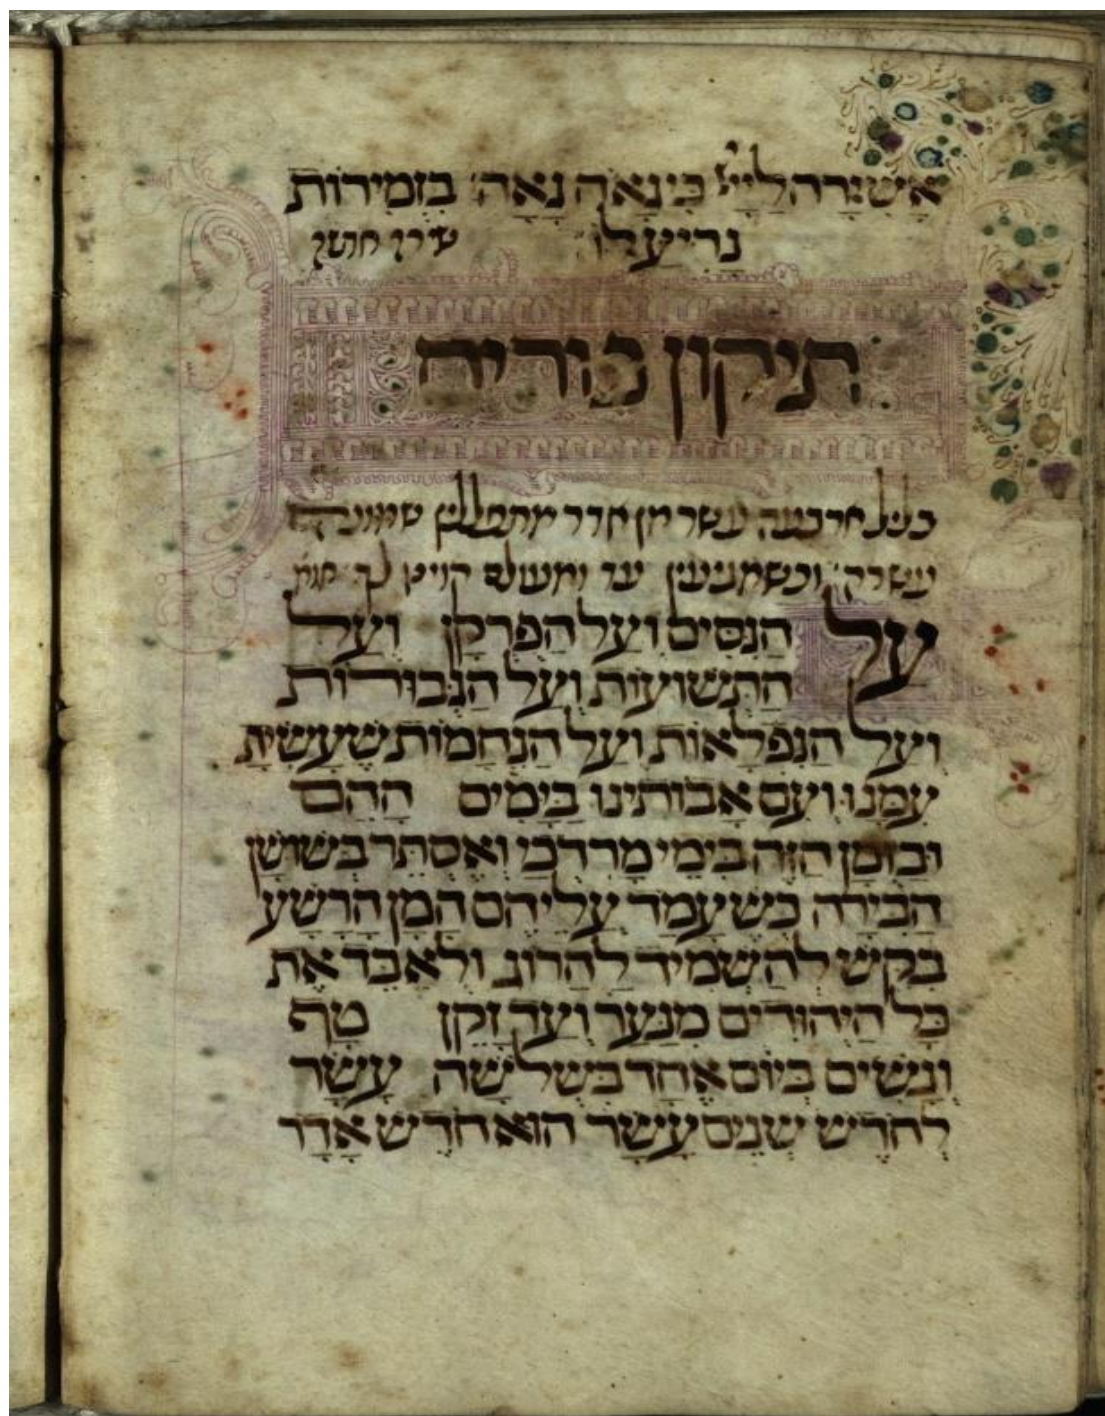 אָשִׁירָה לַייָ כִּי נָאָה נָאָה׃ בִּזְמִירוֹת
נָרִיעַ לוֹ׃
תיקון פורים
בליל ארבעה עשר מן אדר מתפללין שמונה
עשרה׃ וכשמגיעין עד ומעולם קוינו לך׃
עַל הַנִּסִּים וְעַל הַפֻּרְקָן וְעַל
הַתְּשׁוּעוֹת וְעַל הַגְּבוּרוֹת
וְעַל הַנִּפְלָאוֹת וְעַל הַנֶּחָמוֹת שֶׁעָשִׂיתָ
עִמָּנוּ וְעִם אֲבוֹתֵינוּ בַּיָּמִים הָהֵם
וּבַזְּמָן הַזֶּה בִּימֵי מָרְדְּכַי וְאֶסְתֵּר בְּשׁוּשָׁן
הַבִּירָה כְּשֶׁעָמַד עֲלֵיהֶם הָמָן הָרָשָׁע
בִּקֵּשׁ לְהַשְׁמִיד לַהֲרוֹג וּלְאַבֵּד אֶת
כָּל הַיְּהוּדִים מִנַּעַר וְעַד זָקֵן טַף
וְנָשִׁים בְּיוֹם אֶחָד בִּשְׁלֹשָׁה עָשָׂר
לְחֹדֶשׁ שְׁנֵים עָשָׂר הוּא חֹדֶשׁ אֲדָר